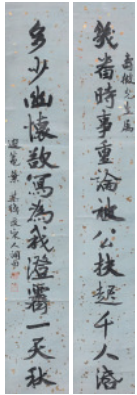 幾番時事重論被公扶起千人
多少幽懷欲寫為我澄霽一天秋
遐菴葉恭綽